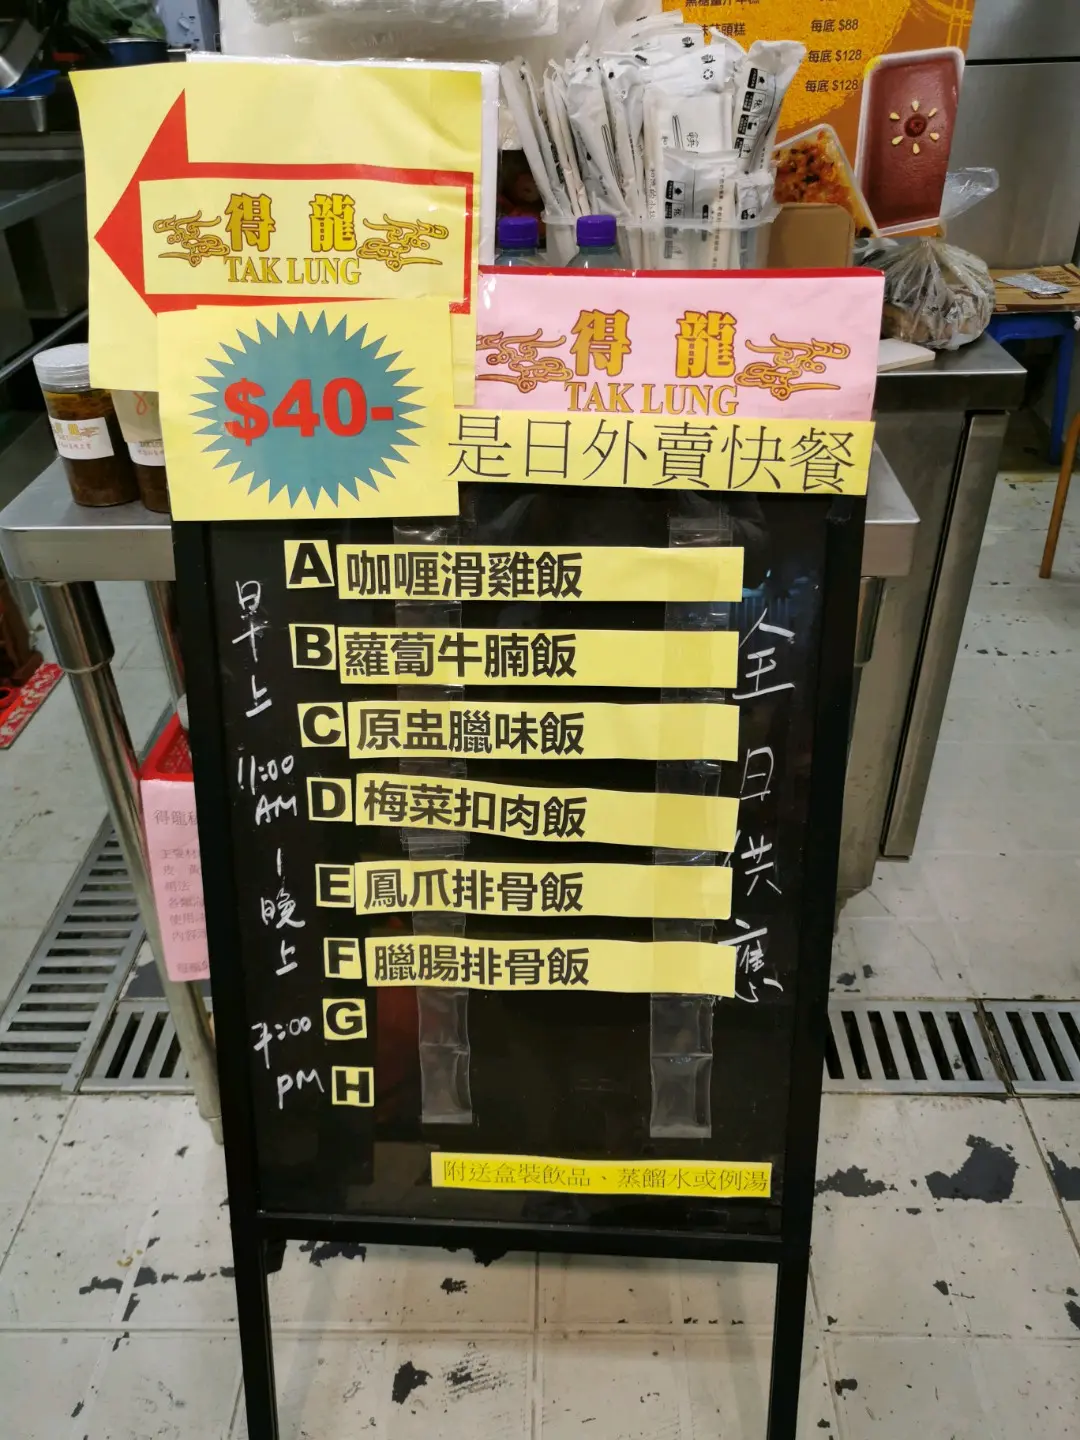 每底 $88
每底 $128
每底 $128
得龍
TAK LUNG
$40-
得龍
TAK LUNG
是日外賣快餐
A 咖喱滑雞飯
B 蘿蔔牛腩飯
C 原盅臘味飯
D 梅菜扣肉飯
E 鳳爪排骨飯
F 臘腸排骨飯
G
H
早上
11:00
AM
|
晚上
7:00
PM
全日供應
附送盒裝飲品、蒸餾水或例湯